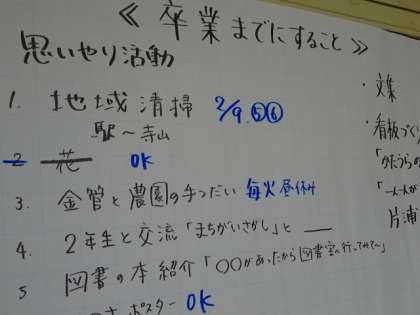 ≪ 卒業までにすること ≫
思いやり活動
1. 地域清掃 2/9. ⑤⑥
駅～寺山
2 花 OK
3. 金管と農園の手つだい 毎火昼休み
4. 2年生と交流「まちがいさがし」と ＿
5 図書の本紹介「○○があったから図書室へ行ってみて～」
ポスター OK
・文集
・看板づく
「かたうらの
「一人一人が
片浦